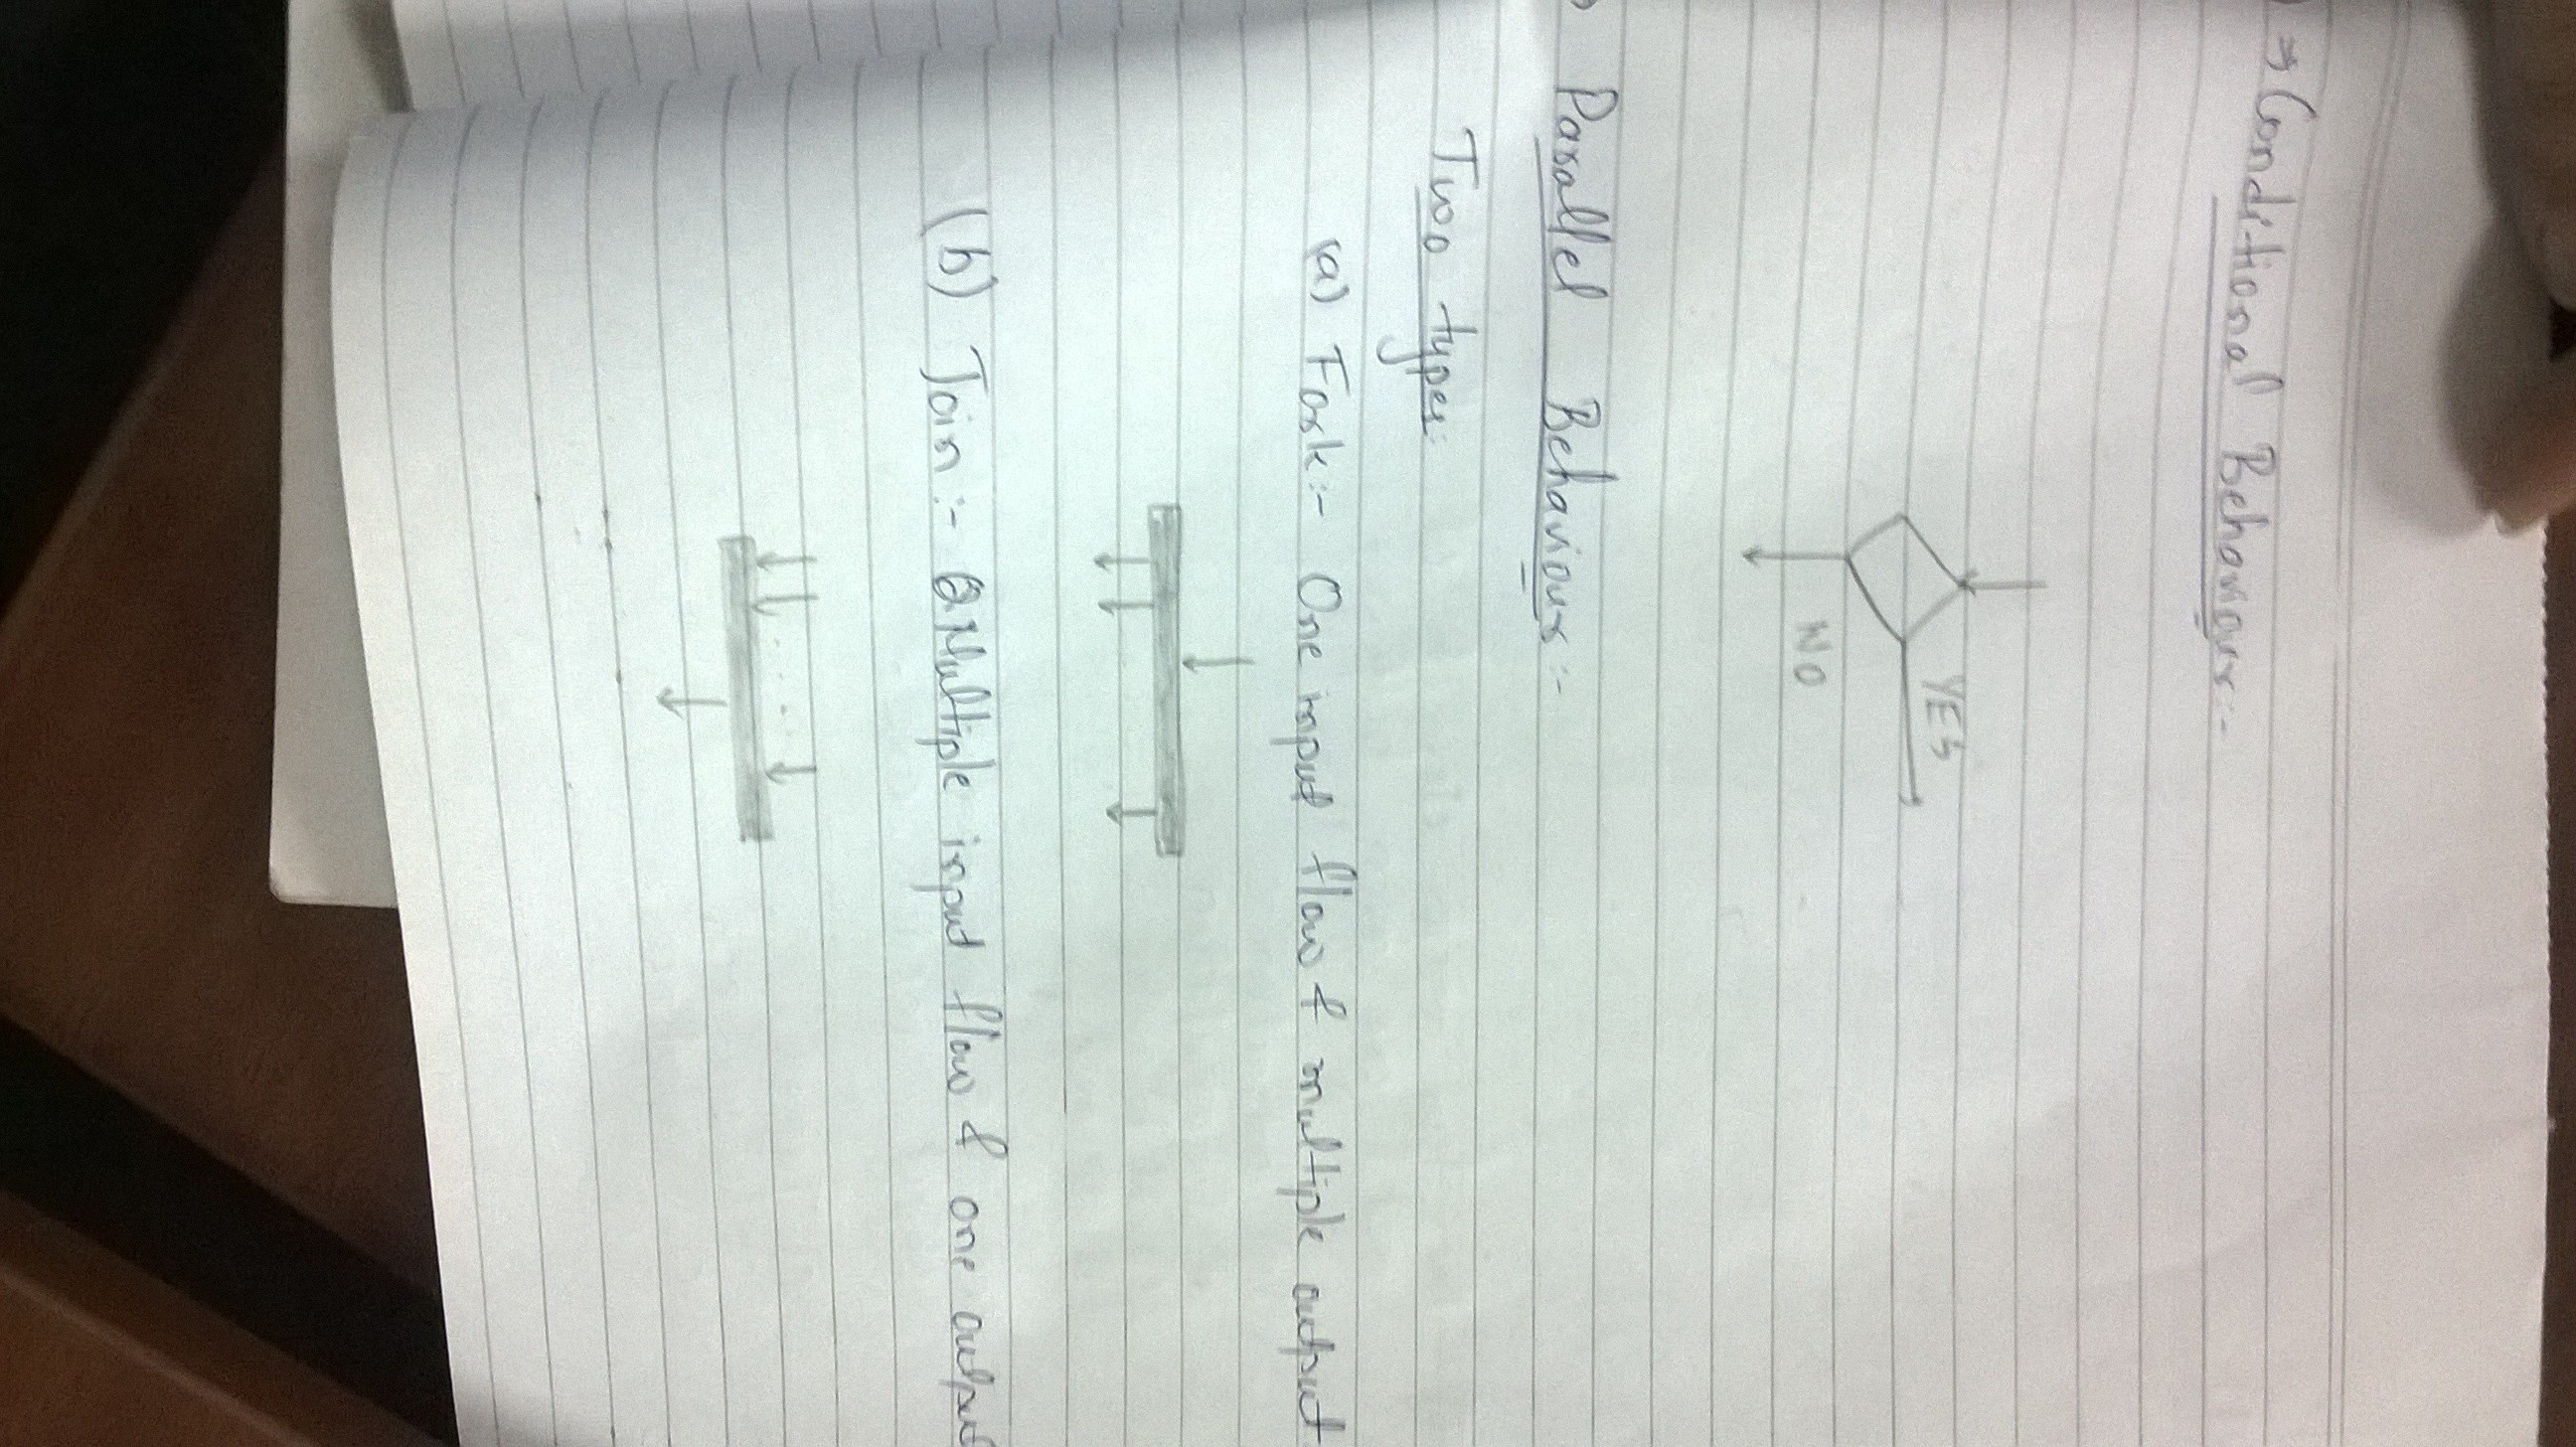 ⇒ Conditional Behaviour:-
YES
NO
Parallel Behaviour:-
Two types:
(a) Fork:- One input flow & multiple output
(b) Join:- Multiple input flow & one output